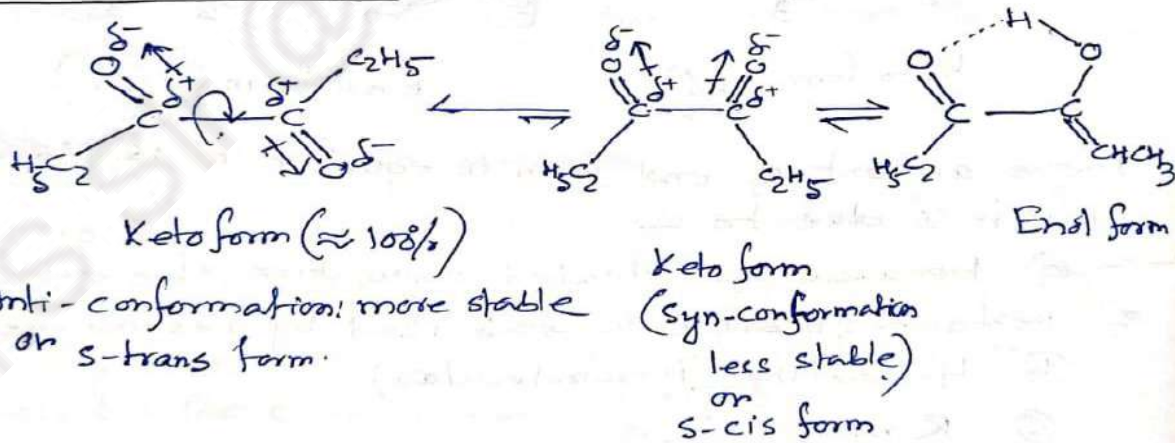 δ- O δ+ C H5C2
δ+ C C2H5 O δ-
δ- O δ+ C H5C2
δ- O δ+ C C2H5
O H O C C H5C2 CHCH3
Keto form (≈ 100%)
anti-conformation: more stable
or s-trans form.
Keto form
(syn-conformation
less stable)
or
s-cis form
Enol form